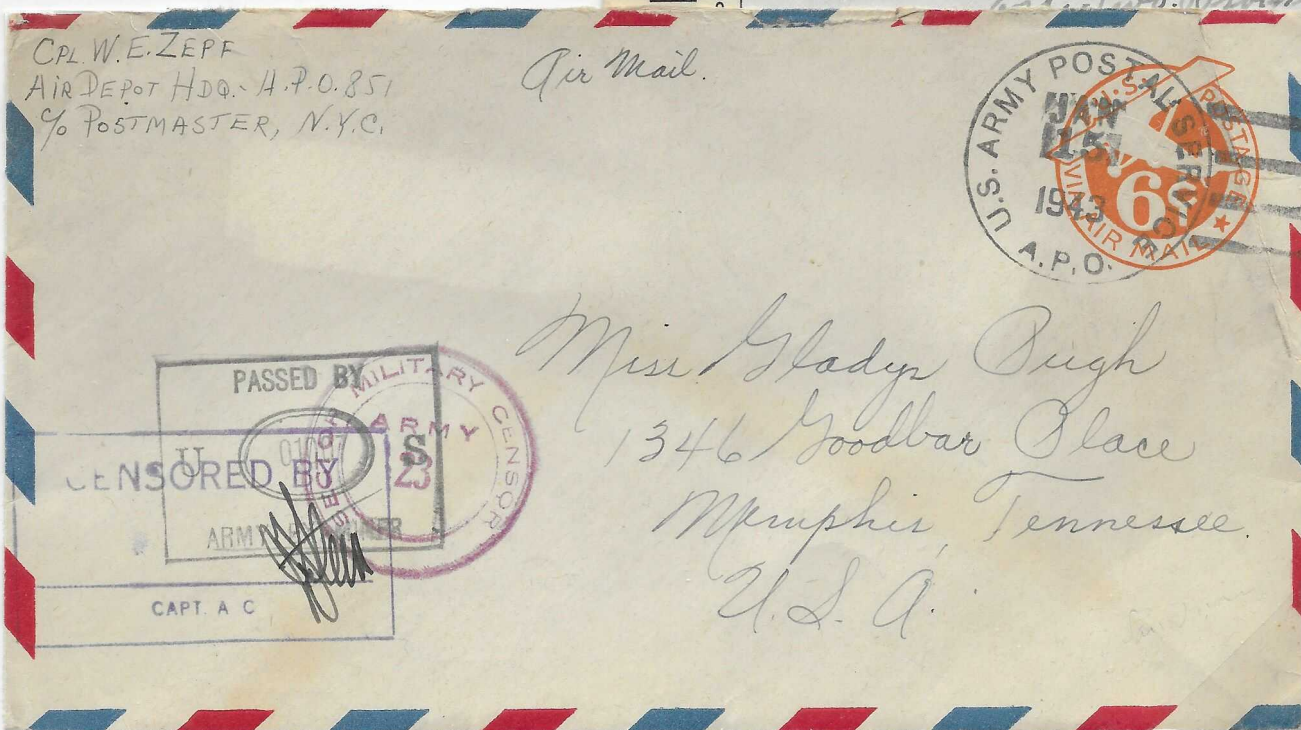 CPL. W. E. ZEPF
AIR DEPOT HDQ.- A.P.O. 851
c/o POSTMASTER, N.Y.C.
Air Mail.
U.S. ARMY POSTAL SERVICE
A.P.O.
JAN
15
1943
U.S. POSTAGE
6¢
VIA AIR MAIL
Miss Gladys Pugh
1346 Goodbar Place
Memphis, Tennessee.
U. S. A.
PASSED BY
U S
ARMY EXAMINER
MILITARY CENSOR
ARMY
23
CENSORED BY
CAPT. A C